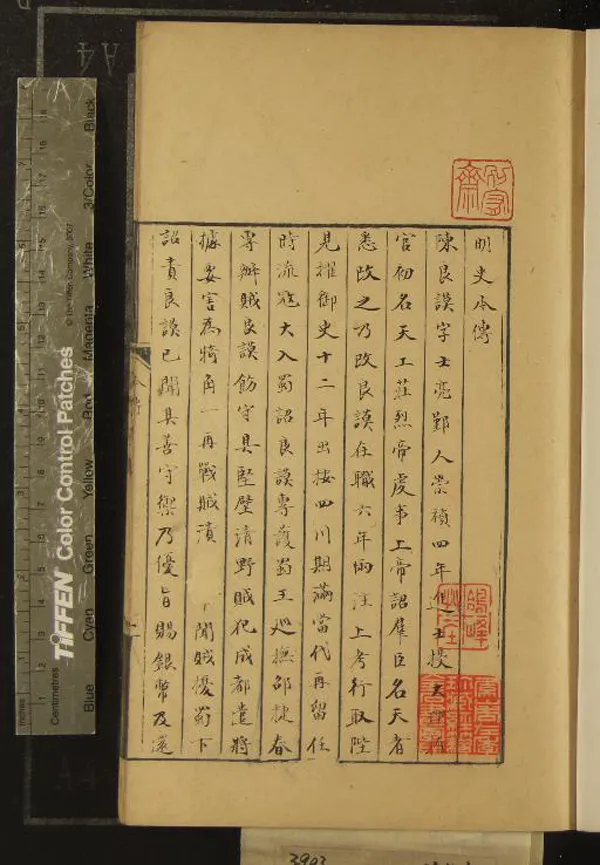 明史本傳
陳良謨字士亮鄞人崇禎四年進士授大理
官初名天工莊烈帝虔事上帝詔羣臣名天者
悉改之乃改良謨任職六年兩注上考行取陛
見擢御史十二年出按四川期滿當代再留任
時流寇大入蜀詔良謨專護蜀王巡撫邵捷春
專辦賊良謨飭守具堅壁清野賊犯成都遣將
據要害為犄角一再戰賊潰 聞賊擾蜀下
詔責良謨已聞其善守禦乃優旨賜銀幣及還
本傳
一
TIFFEN Color Control Patches
© The Tiffen Company, 2007
Blue Cyan Green Yellow Red Magenta White 3/Color Black
Inches
Centimetres
A4
3903